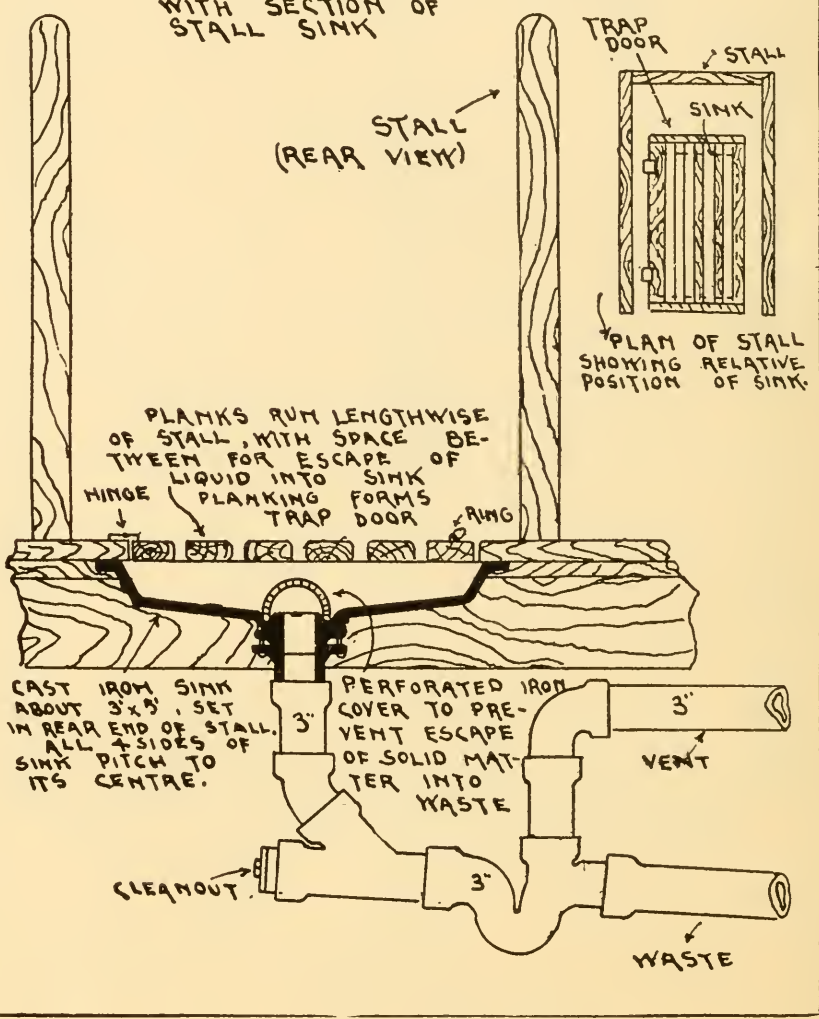 WITH SECTION OF
STALL SINK
TRAP
DOOR
STALL
SINK
STALL
(REAR VIEW)
PLAN OF STALL
SHOWING RELATIVE
POSITION OF SINK.
PLANKS RUN LENGTHWISE
OF STALL, WITH SPACE BE-
TWEEN FOR ESCAPE OF
LIQUID INTO SINK
HINGE
PLANKING FORMS
TRAP DOOR
RING
CAST IRON SINK
ABOUT 3'x5', SET
IN REAR END OF STALL.
ALL 4 SIDES OF
SINK PITCH TO
ITS CENTRE.
3"
PERFORATED IRON
COVER TO PRE-
VENT ESCAPE
OF SOLID MAT-
TER INTO
WASTE
3"
VENT
CLEANOUT
3"
WASTE